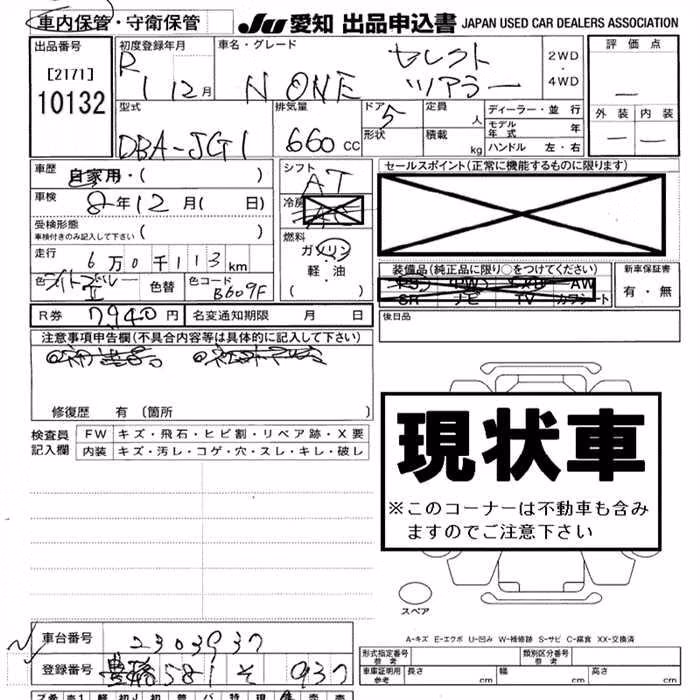 車内保管・守衛保管
JU 愛知 出品申込書 JAPAN USED CAR DEALERS ASSOCIATION
出品番号
[2171]
10132
初度登録年月
R 1 12月
車名・グレード
N ONE セレクト
ツアラー
2WD
・
4WD
評価点
―
外装 内装
― ―
型式
DBA-JG1
排気量
660 cc
ドア 5
形状
定員 人
積載 kg
ディーラー・並行
モデル
年式 年
ハンドル 左・右
車歴
自家用・( )
車検
8年12月( 日)
受検形態
車検付きのみ記入して下さい ( )
走行
6万0千113km
色
II
色替
色コード
B609F
シフト
AT
冷房
燃料
ガソリン
・
軽・油
( )
セールスポイント(正常に機能するものに限ります)
装備品(純正品に限り○をつけてください)
AW
SR ナビ TV カワシート
新車保証書
有・無
後日品
R券 7940円
名変通知期限 月 日
注意事項申告欄(不具合内容等は具体的に記入して下さい)
修復歴 有(箇所 )
検査員
記入欄
FW キズ・飛石・ヒビ割・リペア跡・X要
内装 キズ・汚レ・コゲ・穴・スレ・キレ・破レ
現状車
※このコーナーは不動車も含み
ますのでご注意下さい
スペア
A-キズ E-エクボ U-凹み W-補修跡 S-サビ C-腐食 XX-交換済
車台番号 2303937
登録番号 豊橋 581 そ 937
形式指定番号
参考
類別区分番号
参考
車庫証明用
参考
長さ cm 幅 cm 高さ cm